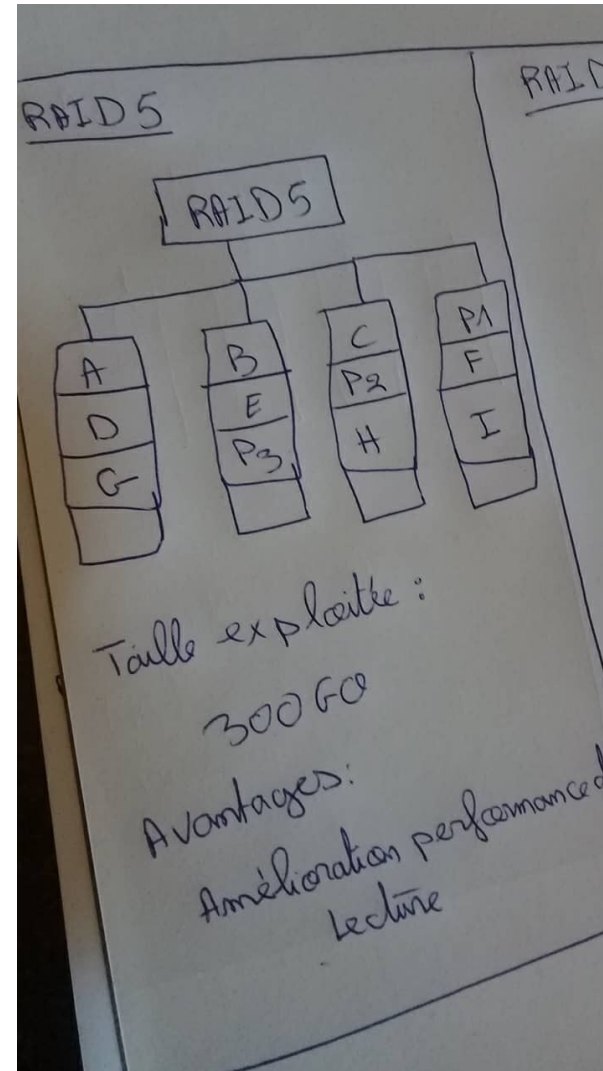 RAID 5
RAID
RAID 5
A B C P1
D E P2 F
G P3 H I
Taille exploitée :
300 GO
Avantages:
Amélioration performance d
Lecture